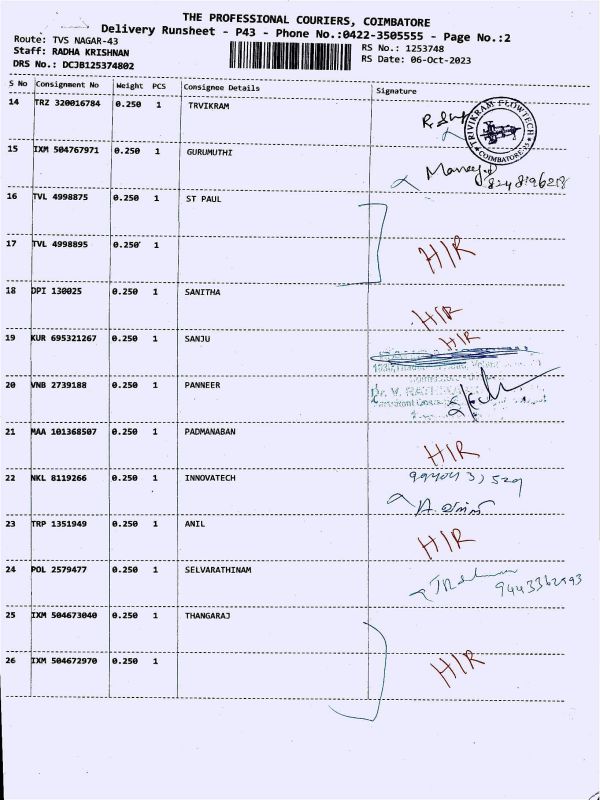 THE PROFESSIONAL COURIERS, COIMBATORE
Delivery Runsheet - P43 - Phone No.:0422-3505555 - Page No.:2
Route: TVS NAGAR-43
RS No.: 1253748
Staff: RADHA KRISHNAN
RS Date: 06-Oct-2023
DRS No.: DCJB125374802
S No Consignment No Weight PCS Consignee Details Signature
14 TRZ 320016784 0.250 1 TRVIKRAM
TRIVIKRAM FLOWTECH COIMBATORE
15 IXM 504767971 0.250 1 GURUMUTHI
16 TVL 4998875 0.250 1 ST PAUL
17 TVL 4998895 0.250 1
HIR
18 DPI 130025 0.250 1 SANITHA
HIR
19 KUR 695321267 0.250 1 SANJU
HIR
20 VNB 2739188 0.250 1 PANNEER
Dr. V.
21 MAA 101368507 0.250 1 PADMANABAN
HIR
22 NKL 8119266 0.250 1 INNOVATECH
23 TRP 1351949 0.250 1 ANIL
HIR
24 POL 2579477 0.250 1 SELVARATHINAM
25 IXM 504673040 0.250 1 THANGARAJ
26 IXM 504672970 0.250 1
HIR